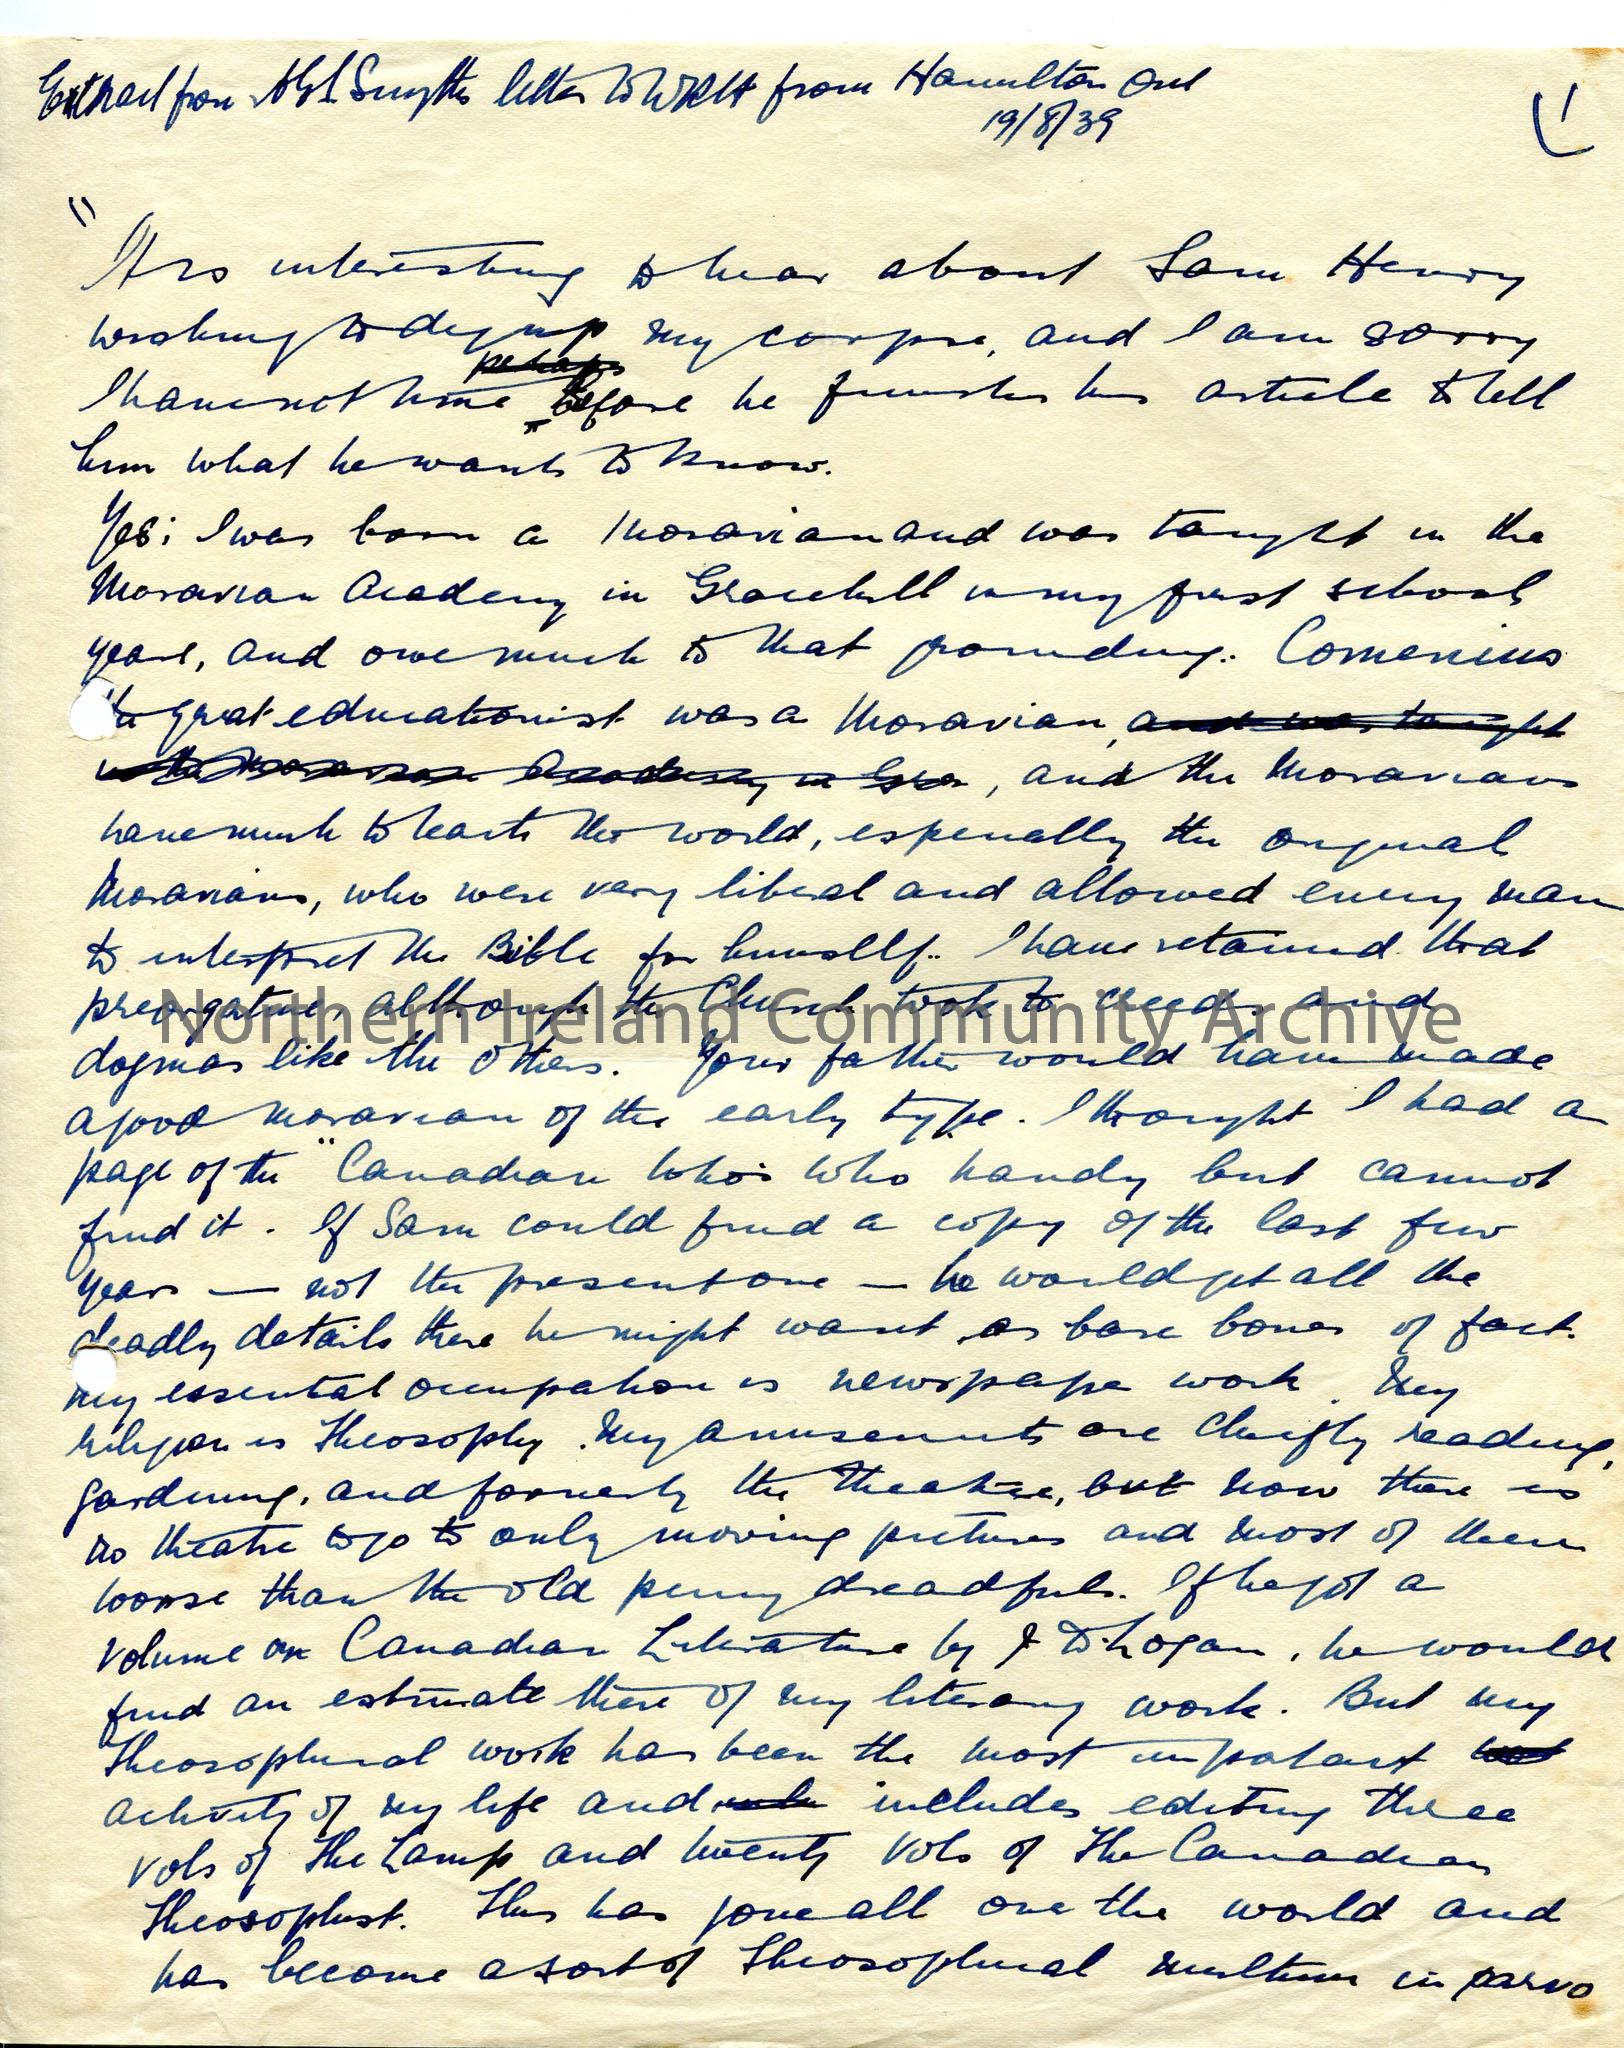 Extract from A E S Smythe's letter to WRH from Hamilton Ont
19/8/39
1
"It is interesting to hear about Sam Henry
wishing to dig up my corpse, and I am sorry
perhaps
I have not time before he finishes his article to tell
him what he wants to know.
Yes; I was born a Moravian and was taught in the
Moravian Academy in Gracehill in my first school
years, and owe much to that grounding. Comenius
the great educationist was a Moravian, and was taught
in the Moravian Academy in Grace, and the Moravians
have much to teach the world, especially the original
Moravians, who were very liberal and allowed every man
to interpret the Bible for himself. I have retained that
prerogative, although the Church took to creeds and
dogmas like the others. Your father would have made
a good Moravian of the early type. I thought I had a
page of the "Canadian Who's Who handy but cannot
find it. If Sam could find a copy of the last few
years — not the present one — he would get all the
deadly details there he might want as bare bones of fact.
My essential occupation is newspaper work. My
religion is Theosophy. My amusements are chiefly reading,
gardening, and formerly the theatre, but now there is
no theatre to go to only moving pictures and most of them
worse than the old penny dreadfuls. If he got a
volume on Canadian Literature by J D Logan, he would
find an estimate there of my literary work. But my
Theosophical work has been the most important
activity of my life and includes editing three
vols of The Lamp and twenty vols of The Canadian
Theosophist. This has gone all over the world and
has become a sort of Theosophical multum in parvo
Northern Ireland Community Archive